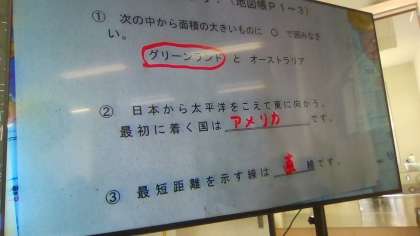 (地図帳P1~3)
① 次の中から面積の大きいものに ○ で囲みなさ
い。
グリーンランド と オーストラリア
② 日本から太平洋をこえて東に向かう。
最初に着く国は アメリカ です。
③ 最短距離を示す線は 直 線です。